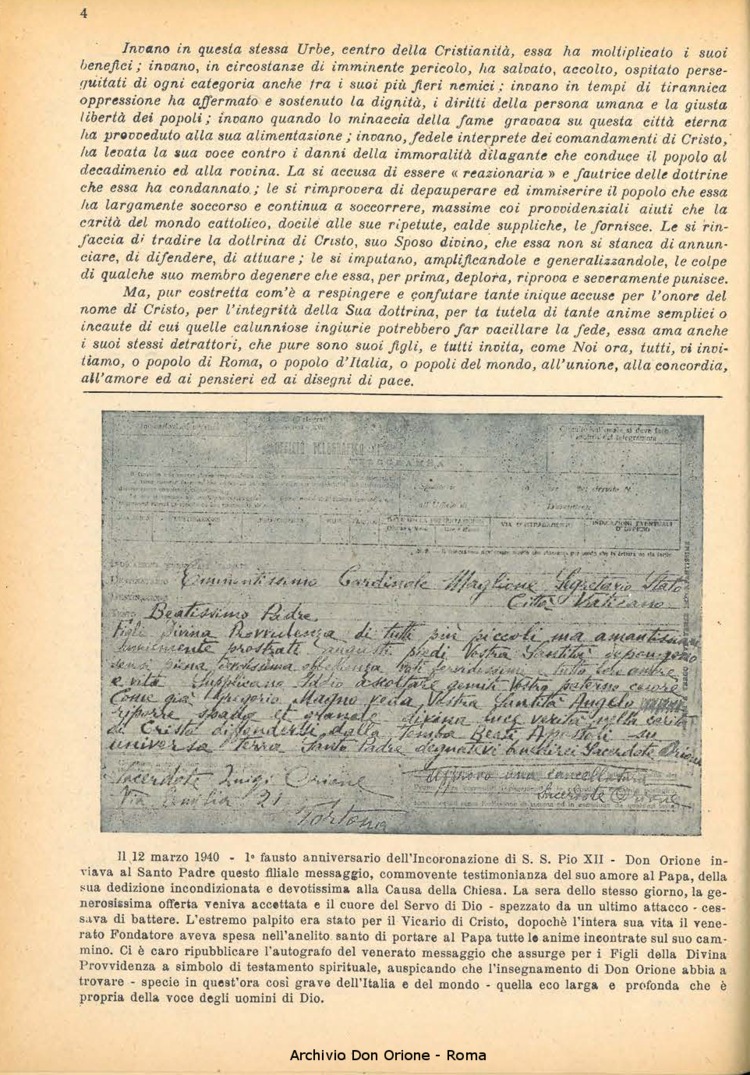 4
Invano in questa stessa Urbe, centro della Cristianità, essa ha moltiplicato i suoi
benefici ; invano, in circostanze di imminente pericolo, ha salvato, accolto, ospitato perse-
guitati di ogni categoria anche fra i suoi più fieri nemici ; invano in tempi di tirannica
oppressione ha affermato e sostenuto la dignità, i diritti della persona umana e la giusta
libertà dei popoli ; invano quando lo minaccia della fame gravava su questa città eterna
ha provveduto alla sua alimentazione ; invano, fedele interprete dei comandamenti di Cristo,
ha levata la sua voce contro i danni della immoralità dilagante che conduce il popolo al
decadimenio ed alla rovina. La si accusa di essere « reazionaria » e fautrice delle dottrine
che essa ha condannato ; le si rimprovera di depauperare ed immiserire il popolo che essa
ha largamente soccorso e continua a soccorrere, massime coi provvidenziali aiuti che la
carità del mondo cattolico, docile alle sue ripetute, calde suppliche, le fornisce. Le si rin-
faccia di tradire la dotlrina di Cristo, suo Sposo divino, che essa non si stanca di annun-
ciare, di difendere, di attuare ; le si imputano, amplificandole e generalizzandole, le colpe
di qualche suo membro degenere che essa, per prima, deplora, riprova e severamente punisce.
Ma, pur costretta com'è a respingere e confutare tante inique accuse per l'onore del
nome di Cristo, per l'integrità della Sua dottrina, per ta tutela di tante anime semplici o
incaute di cui quelle calunniose ingiurie potrebbero far vacillare la fede, essa ama anche
i suoi stessi detrattori, che pure sono suoi figli, e tutti invita, come Noi ora, tutti, vi invi-
tiamo, o popolo di Roma, o popolo d'Italia, o popoli del mondo, all'unione, alla concordia,
all'amore ed ai pensieri ed ai disegni di pace.
Eminentissimo Cardinale Maglione Segretario Stato
Città Vaticano
Beatissimo Padre
Figli Divina Provvidenza di tutti più piccoli ma amantissimi
umilmente prostrati augusti piedi Vostra Santità depongono
piena obbedienza voti fervidissimi tutto loro amore
e vita Supplicano Iddio ascoltare gemiti Vostro paterno cuore
Come già Gregorio Magno veda Vostra Santità Angelo
riporre spada et divina luce verità nella carità
di Cristo diffondersi dalla Tomba Beati Apostoli su
universa Terra Santo Padre degnatevi benedirci Sacerdote Orione
Sacerdote Luigi Orione
Approvo una cancellatura
Via Emilia 21
Sacerdote Orione
Tortona
Il 12 marzo 1940 - 1º fausto anniversario dell'Incoronazione di S. S. Pio XII - Don Orione in-
viava al Santo Padre questo filiale messaggio, commovente testimonianza del suo amore al Papa, della
sua dedizione incondizionata e devotissima alla Causa della Chiesa. La sera dello stesso giorno, la ge-
nerosissima offerta veniva accettata e il cuore del Servo di Dio - spezzato da un ultimo attacco - ces-
sava di battere. L'estremo palpito era stato per il Vicario di Cristo, dopochè l'intera sua vita il vene-
rato Fondatore aveva spesa nell'anelito santo di portare al Papa tutte le anime incontrate sul suo cam-
mino. Ci è caro ripubblicare l'autografo del venerato messaggio che assurge per i Figli della Divina
Provvidenza a simbolo di testamento spirituale, auspicando che l'insegnamento di Don Orione abbia a
trovare - specie in quest'ora così grave dell'Italia e del mondo - quella eco larga e profonda che è
propria della voce degli uomini di Dio.
Archivio Don Orione - Roma